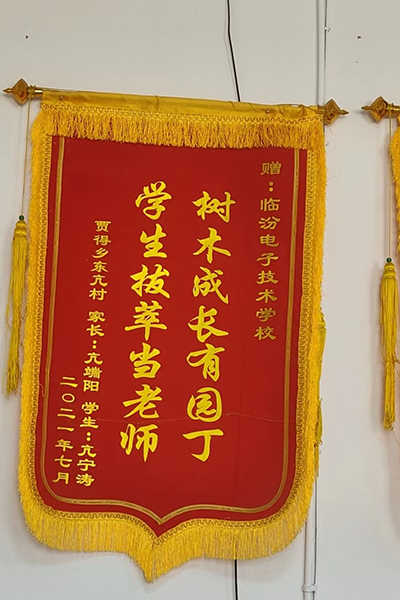 赠：临汾电子技术学校
树木成长有园丁
学生拔萃当老师
贾得乡东亢村 家长：亢端阳 学生：亢宁涛
二〇二一年七月